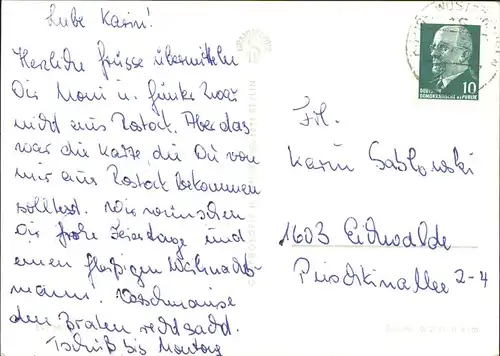 Liebe Karin!
Herzliche Grüsse übermitteln
Dir Moni u. Günter Zwar
nicht aus Rostock. Aber das
war die Karte, die Du von
mir aus Rostock bekommen
solltest. Wir wünschen
Dir frohe Feiertage und
einen fleißigen Weihnachts-
mann.
den Braten recht sacht.
Tschüß bis Montag
10
DEUTSCHE
DEMOKRATISCHE REPUBLIK
Frl.
Karin Sablowski
1603 Eichwalde
Puschkinallee 2-4